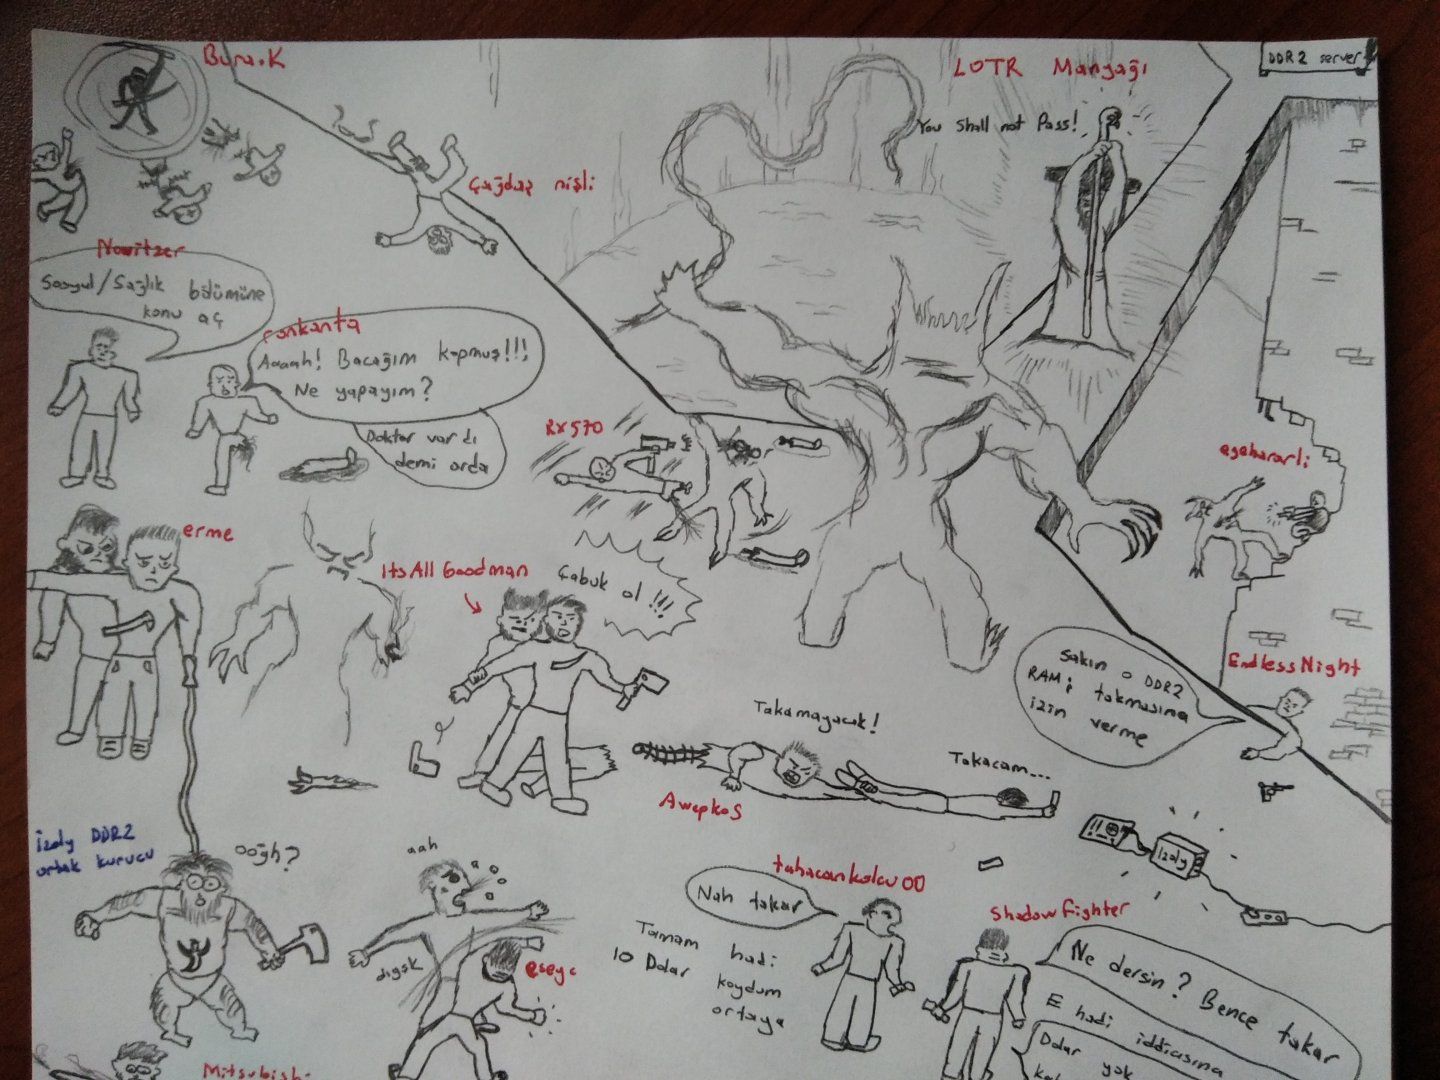 Bura.K
LOTR Manyağı
DDR2 server
You shall not Pass!
Çağdaş nişli
Nowitzer
Sosyal/Sağlık bölümüne
konu aç
fonkonta
Aaaah! Bacağım kopmuş!!!
Ne yapayım?
Doktor vardı
demi orda
RX570
egehararli
erme
ItsAll Goodman
Çabuk ol !!!
EndlessNight
Sakın o DDR2
RAMi takmasına
izin verme
Takamayacak!
Takacam...
Awepkos
izoly DDR2
ortak kurucu
ooğh?
aah
a
dıgşk
eseyc
izoly
tahacankolcu00
Nah takar
Tamam hadi
10 Dolar koydum
ortaya
Shadowfighter
Ne dersin? Bence takar
E hadi iddiasına
Dolar yok
Mitsubishi